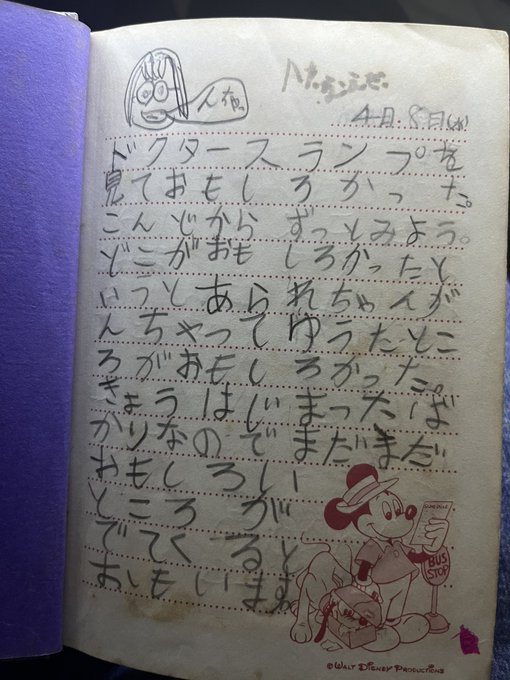 4月8日(水)
ドクタースランプを
見ておもしろかった。
こんどからずっとみよう。
どこがおもしろかったと
いうとあられちゃんが
んちゃってゆうたとこ
ろがおもしろかった。
きょうはじまったば
かりなのでまだまだ
おもしろい
ところが
でてくると
おもいます。
SCHEDULE
BUS
STOP
© WALT DISNEY PRODUCTIONS